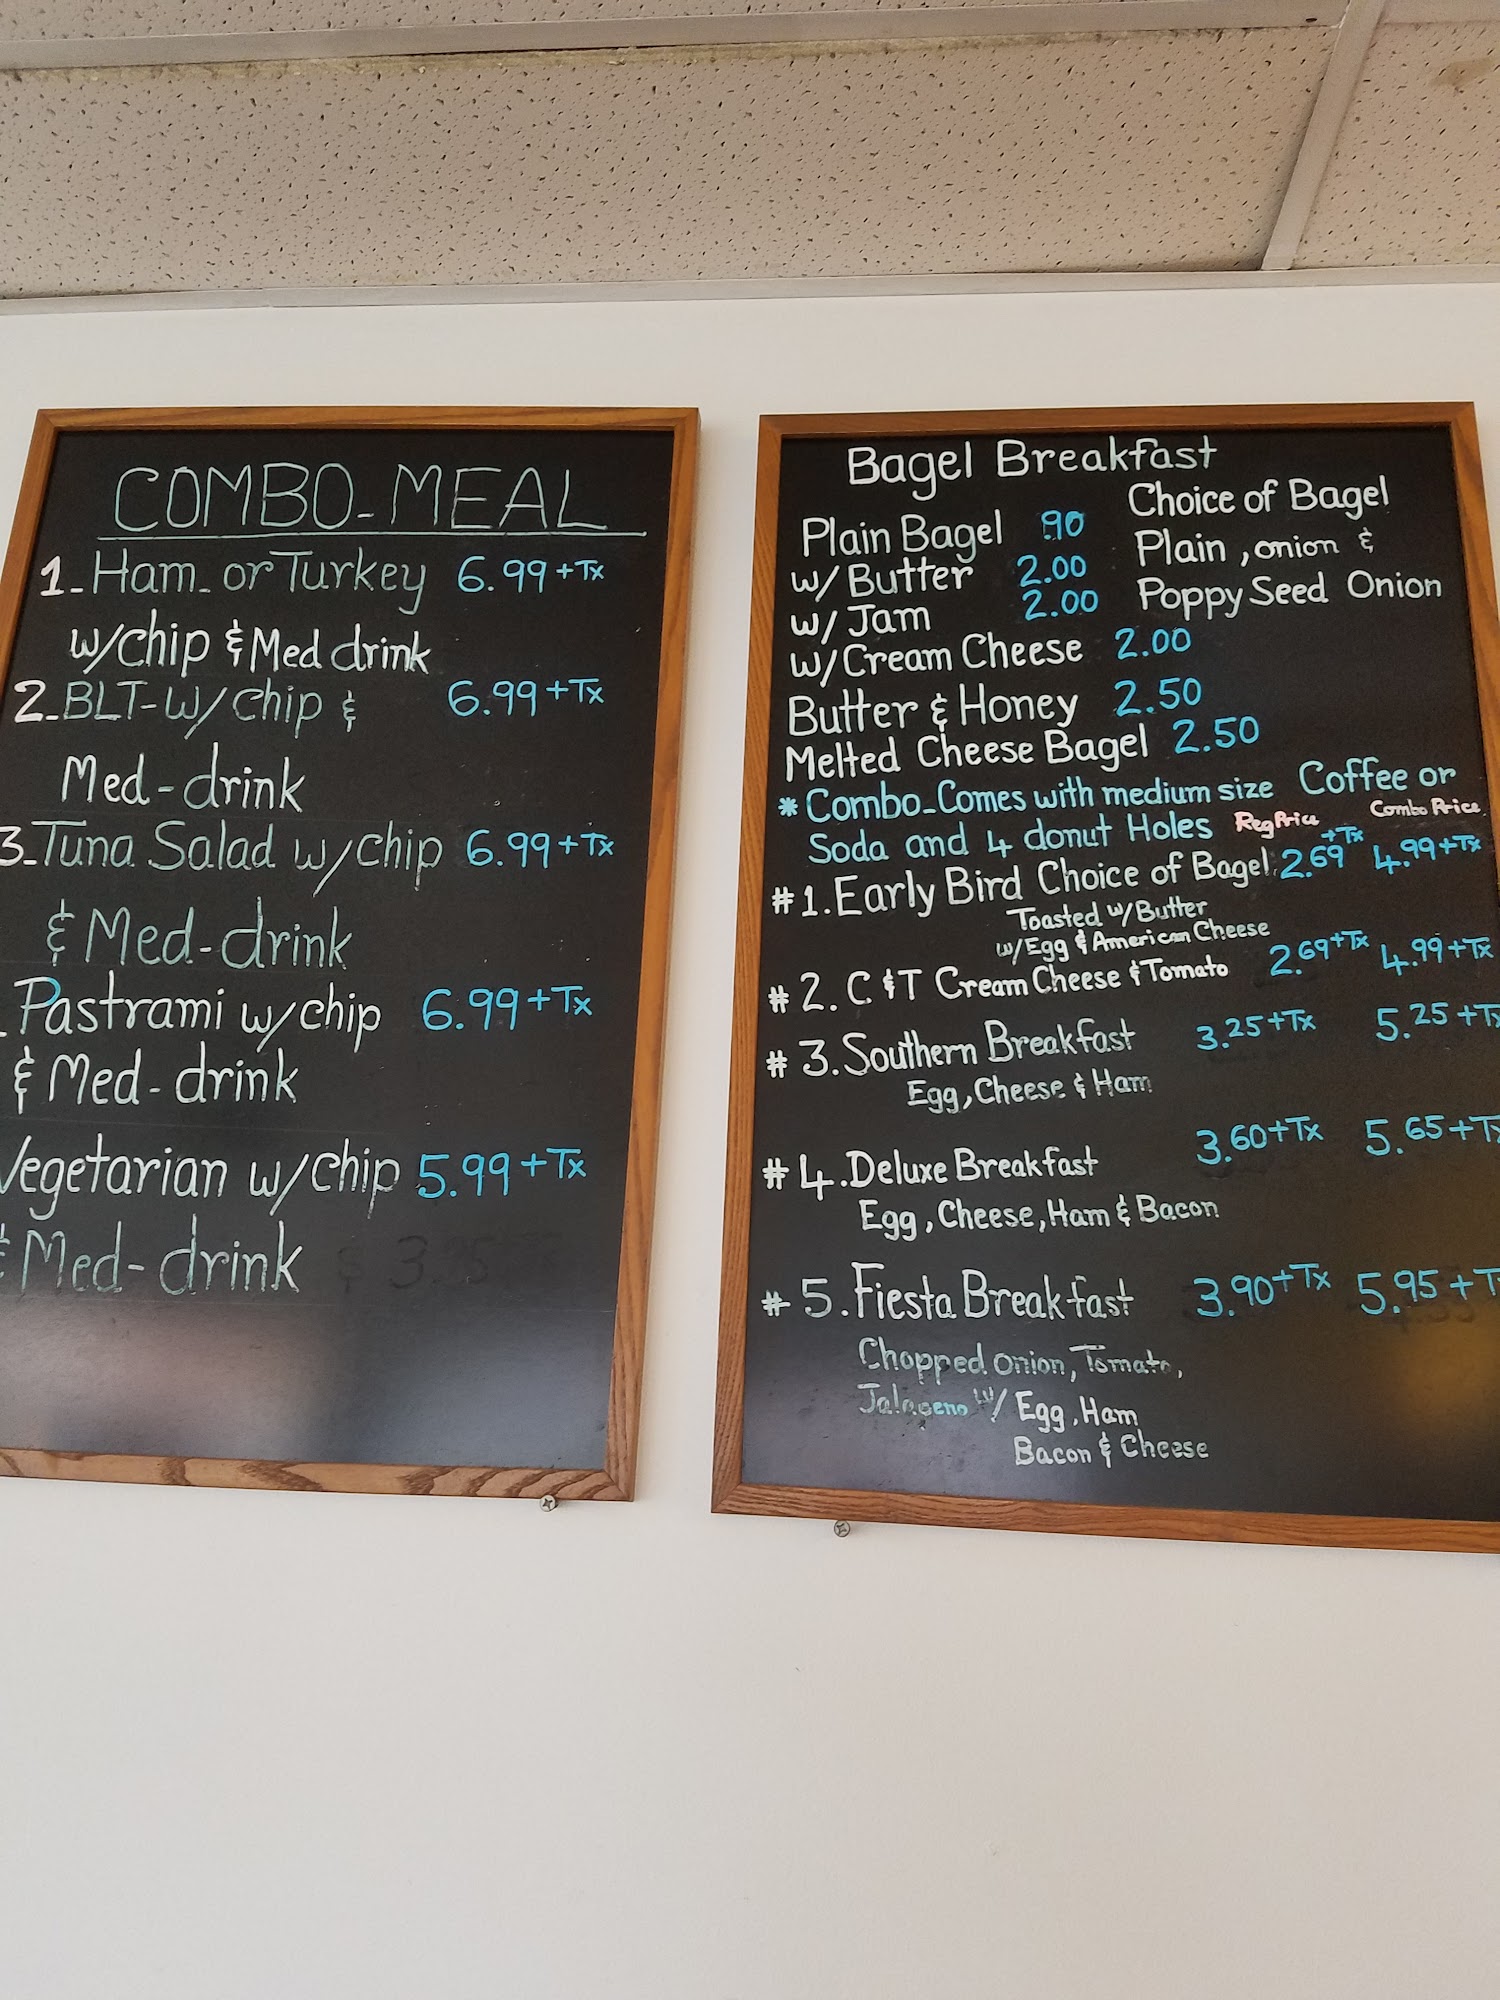 COMBO-MEAL
1- Ham- or Turkey 6.99+Tx
w/chip & Med drink
2-BLT-w/chip & 6.99+Tx
Med-drink
3-Tuna Salad w/chip 6.99+Tx
& Med-drink
Pastrami w/chip 6.99+Tx
& Med-drink
Vegetarian w/chip 5.99+Tx
& Med-drink
$ 3.35
Bagel Breakfast
Choice of Bagel
Plain Bagel .90
Plain, onion &
w/Butter 2.00
Poppy Seed Onion
w/Jam 2.00
w/Cream Cheese 2.00
Butter & Honey 2.50
Melted Cheese Bagel 2.50
* Combo-Comes with medium size Coffee or
Soda and 4 donut Holes Reg Price Combo Price
#1.Early Bird Choice of Bagel 2.69+Tx 4.99+Tx
Toasted w/Butter
w/Egg & American Cheese
#2. C & T Cream Cheese & Tomato 2.69+Tx 4.99+Tx
#3.Southern Breakfast 3.25+Tx 5.25+Tx
Egg, Cheese & Ham
#4.Deluxe Breakfast 3.60+Tx 5.65+Tx
Egg, Cheese, Ham & Bacon
#5.Fiesta Breakfast 3.90+Tx 5.95+T
Chopped onion, Tomato,
Jalapeno w/ Egg, Ham
Bacon & Cheese